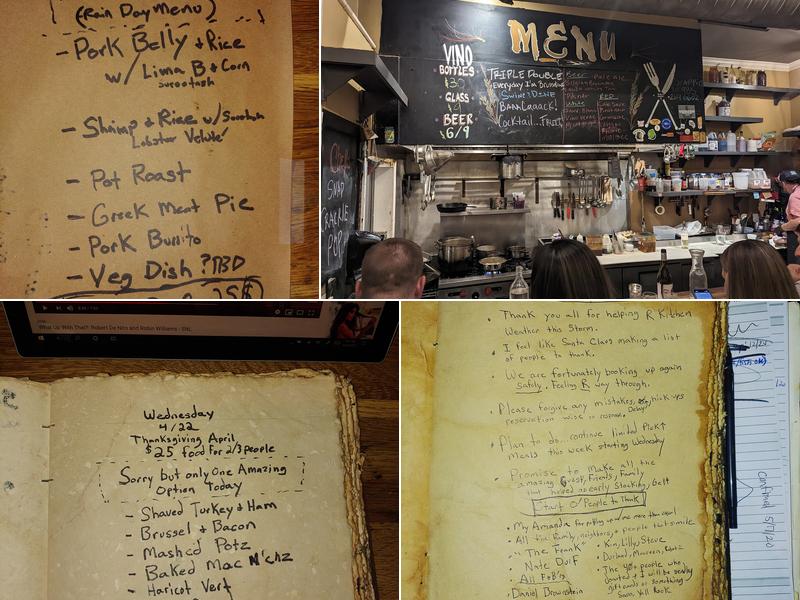 (Rain Day Menu)
- Pork Belly + Rice
w/ Lima B + Corn
succotash
- Shrimp + Rice w/ Succotash
Lobster Veluté
- Pot Roast
- Greek Meat Pie
- Pork Burrito
- Veg Dish ? TBD
25$
MENU
VINO
BOTTLES
GLASS
BEER
$6/9
TRIPLE DOUBLE
Everyday I'm Brunchin
Swine + DINE
BAAALaaack!
Cocktail...FRUIT
Beer
Pale ale
RED
SNAP
CRACKLE
POP
What Up With That?: Robert De Niro and Robin Williams - SNL
Wednesday
4/22
Thanksgiving April
$25 food For 2/3 people
Sorry but only One Amazing
Option Today
- Shaved Turkey & Ham
- Brussel & Bacon
- Mashed Potz
- Baked Mac N'chz
- Haricot Vert
• Thank you all for helping R Kitchen
Weather this Storm.
• I feel like Santa Claus making a list
of people to thank.
• We are fortunately booking up again
Safely. Feeling R way through.
• Please forgive any mistakes, hick-ups
reservation wise or
Delays
• Plan to do... continue limited Pick↑
Meals this week starting Wednesday
• Promise to make all the
amazing Guest, Friends, Family
that helped as early Stocking, belt
Start O' People to Thank
• My Amanda for putting up w/ me more than usual
• All the Family, neighbors, + people that smile
• "The Frank"
• Nate Dulf
• All F+B's
• Daniel Brownstein
• Kim, Lilly, Steve
• Durland, Maureen,
• The 40+ people who
donated + I will be sending
gift cards or something
Soon, Yall Rock
Confirmed 5/7/20